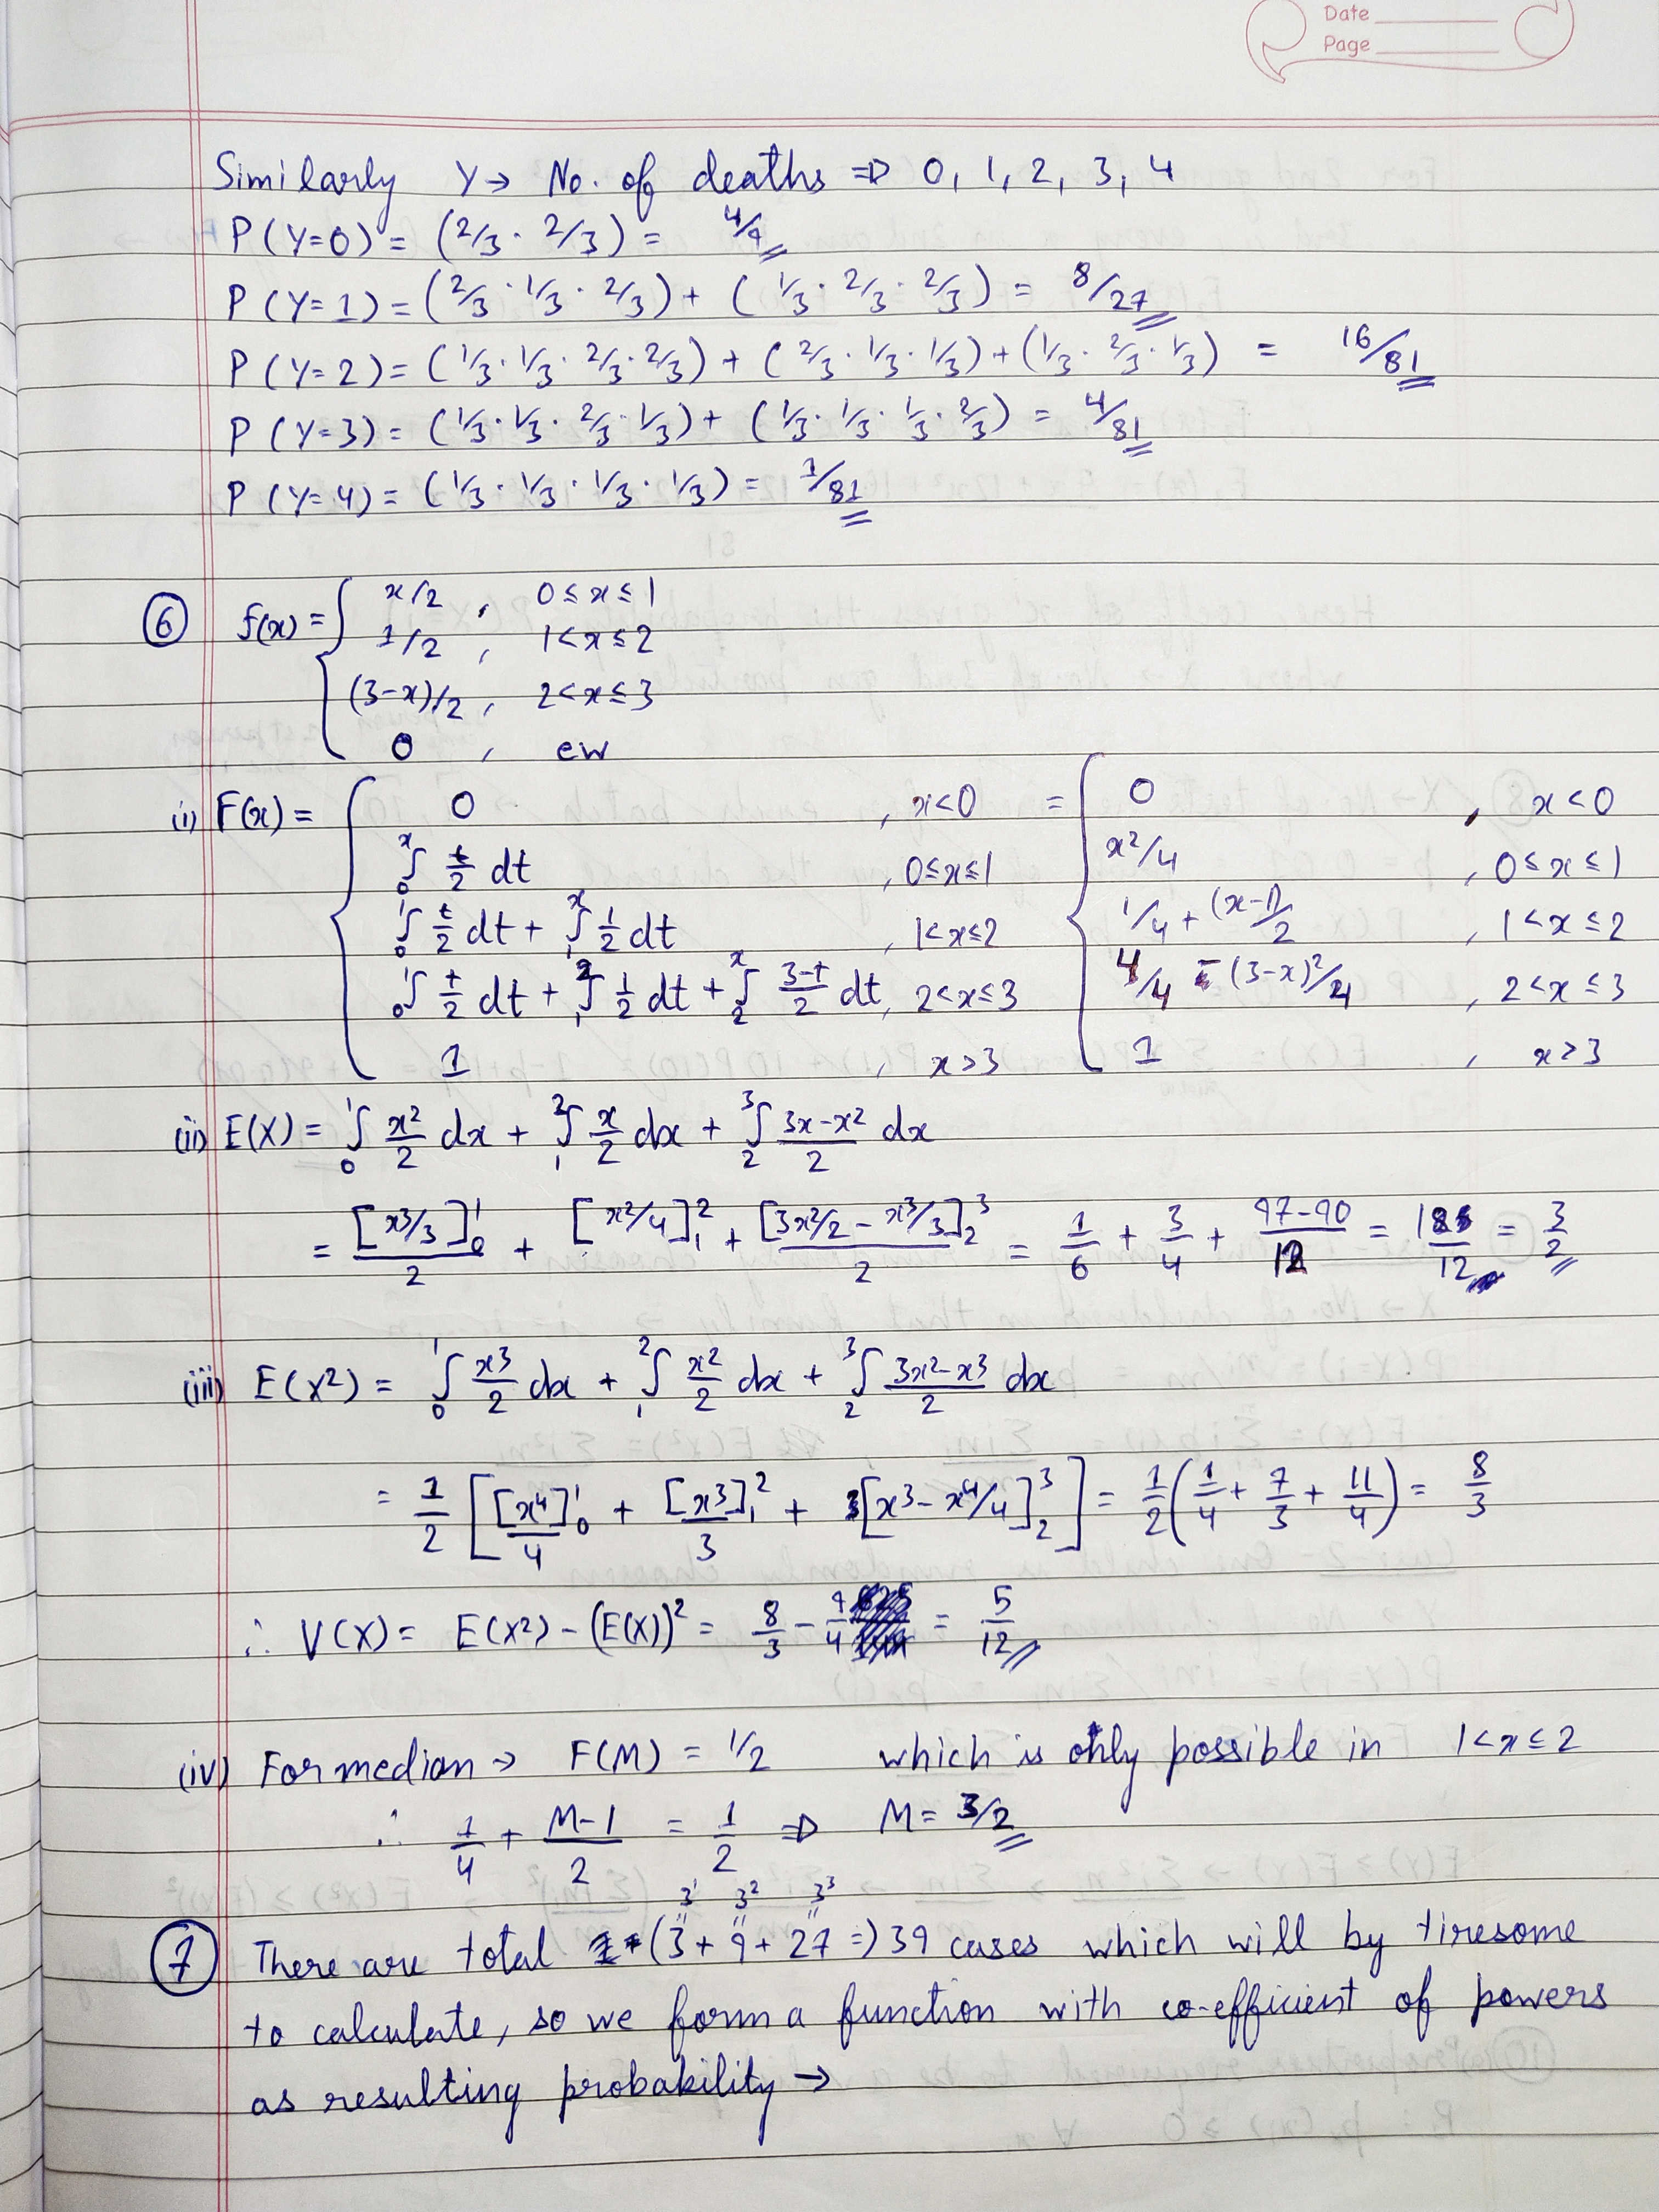 Date
Page
Similarly Y → No. of deaths ⇒ 0, 1, 2, 3, 4
P(Y=0) = (2/3 · 2/3) = 4/9
P(Y=1) = (2/3 · 1/3 · 2/3) + (1/3 · 2/3 · 2/3) = 8/27
P(Y=2) = (1/3 · 1/3 · 2/3 · 2/3) + (2/3 · 1/3 · 1/3) + (1/3 · 2/3 · 1/3) = 16/81
P(Y=3) = (1/3 · 1/3 · 2/3 · 1/3) + (1/3 · 1/3 · 1/3 · 2/3) = 4/81
P(Y=4) = (1/3 · 1/3 · 1/3 · 1/3) = 1/81
⑥ f(x) = { x/2 , 0≤x≤1
1/2 , 1<x≤2
(3-x)/2 , 2<x≤3
0 , ew
(i) F(x) = { 0 , x<0 = { 0 , x<0
∫₀ˣ t/2 dt , 0≤x≤1 x²/4 , 0≤x≤1
∫₀¹ t/2 dt + ∫₁ˣ 1/2 dt , 1<x≤2 1/4 + (x-1)/2 , 1<x≤2
∫₀¹ t/2 dt + ∫₁² 1/2 dt + ∫₂ˣ (3-t)/2 dt , 2<x≤3 4/4 - (3-x)²/4 , 2<x≤3
1 , x>3 1 , x>3
(ii) E(X) = ∫₀¹ x²/2 dx + ∫₁² x/2 dx + ∫₂³ (3x-x²)/2 dx
= [x³/3]₀¹/2 + [x²/4]₁² + [3x²/2 - x³/3]₂³/2 = 1/6 + 3/4 + (97-90)/12 = 18/12 = 3/2
(iii) E(X²) = ∫₀¹ x³/2 dx + ∫₁² x²/2 dx + ∫₂³ (3x²-x³)/2 dx
= 1/2 [ [x⁴]₀¹/4 + [x³]₁²/3 + [x³ - x⁴/4]₂³ ] = 1/2 (1/4 + 7/3 + 11/4) = 8/3
∴ V(X) = E(X²) - (E(X))² = 8/3 - 9/4 = 5/12
(iv) For median → F(M) = 1/2 which is only possible in 1<x≤2
∴ 1/4 + (M-1)/2 = 1/2 ⇒ M = 3/2
3¹ 3² 3³
⑦ There are total (3 + 9 + 27 =) 39 cases which will by tiresome
to calculate, so we form a function with co-efficient of powers
as resulting probability →